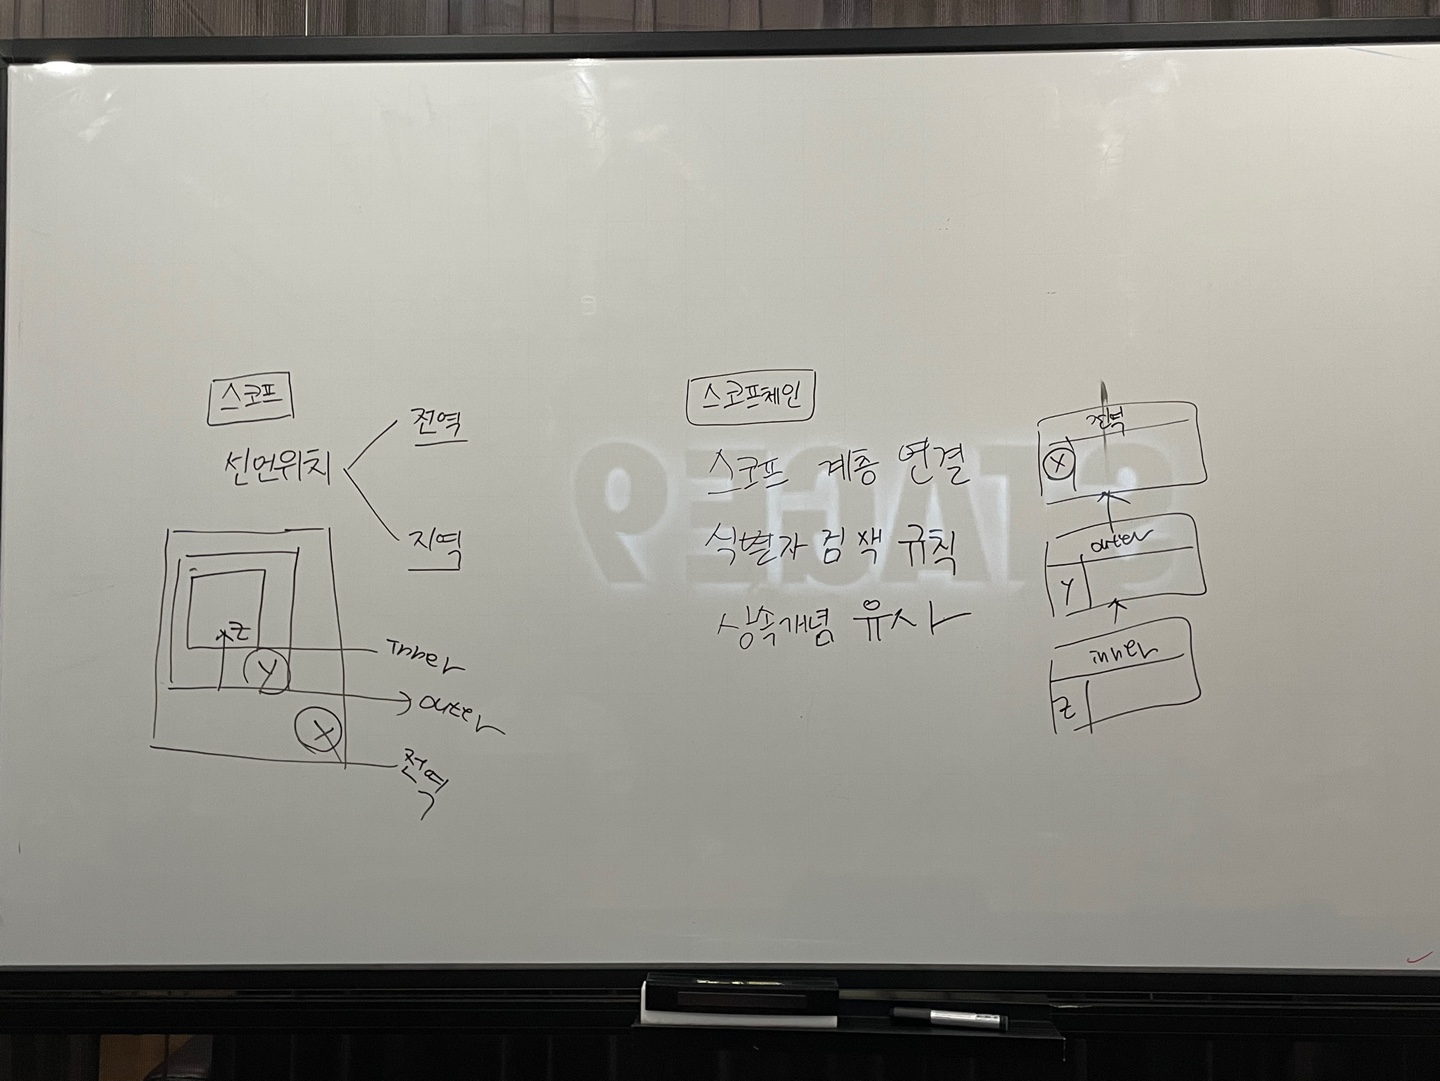 스코프
선언위치
전역
지역
Z
Y
X
Inner
outer
전역
스코프체인
스코프 계층 연결
식별자 검색 규칙
상속개념 유사
전역
X
outer
Y
inner
Z
STAGE9